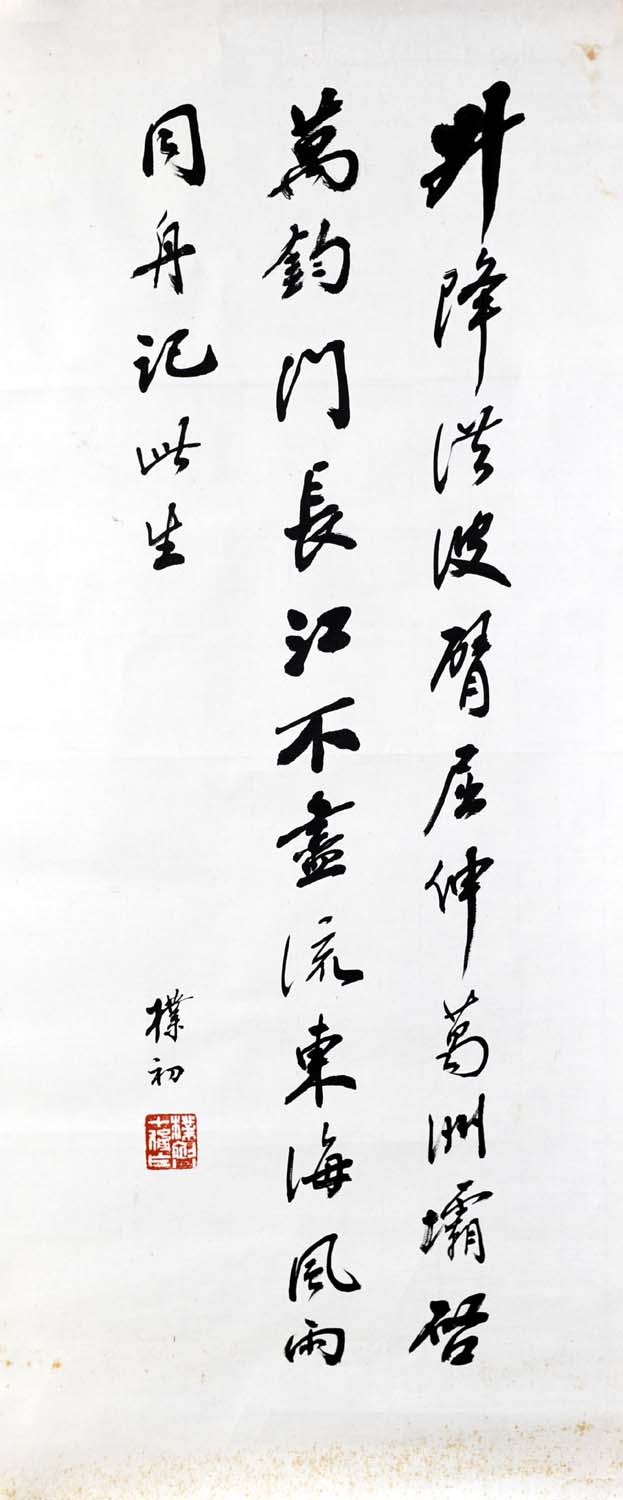 升降洪波臂屈伸葛洲壩啓
萬鈞門長江不盡流東海風雨
同舟記此生
樸初